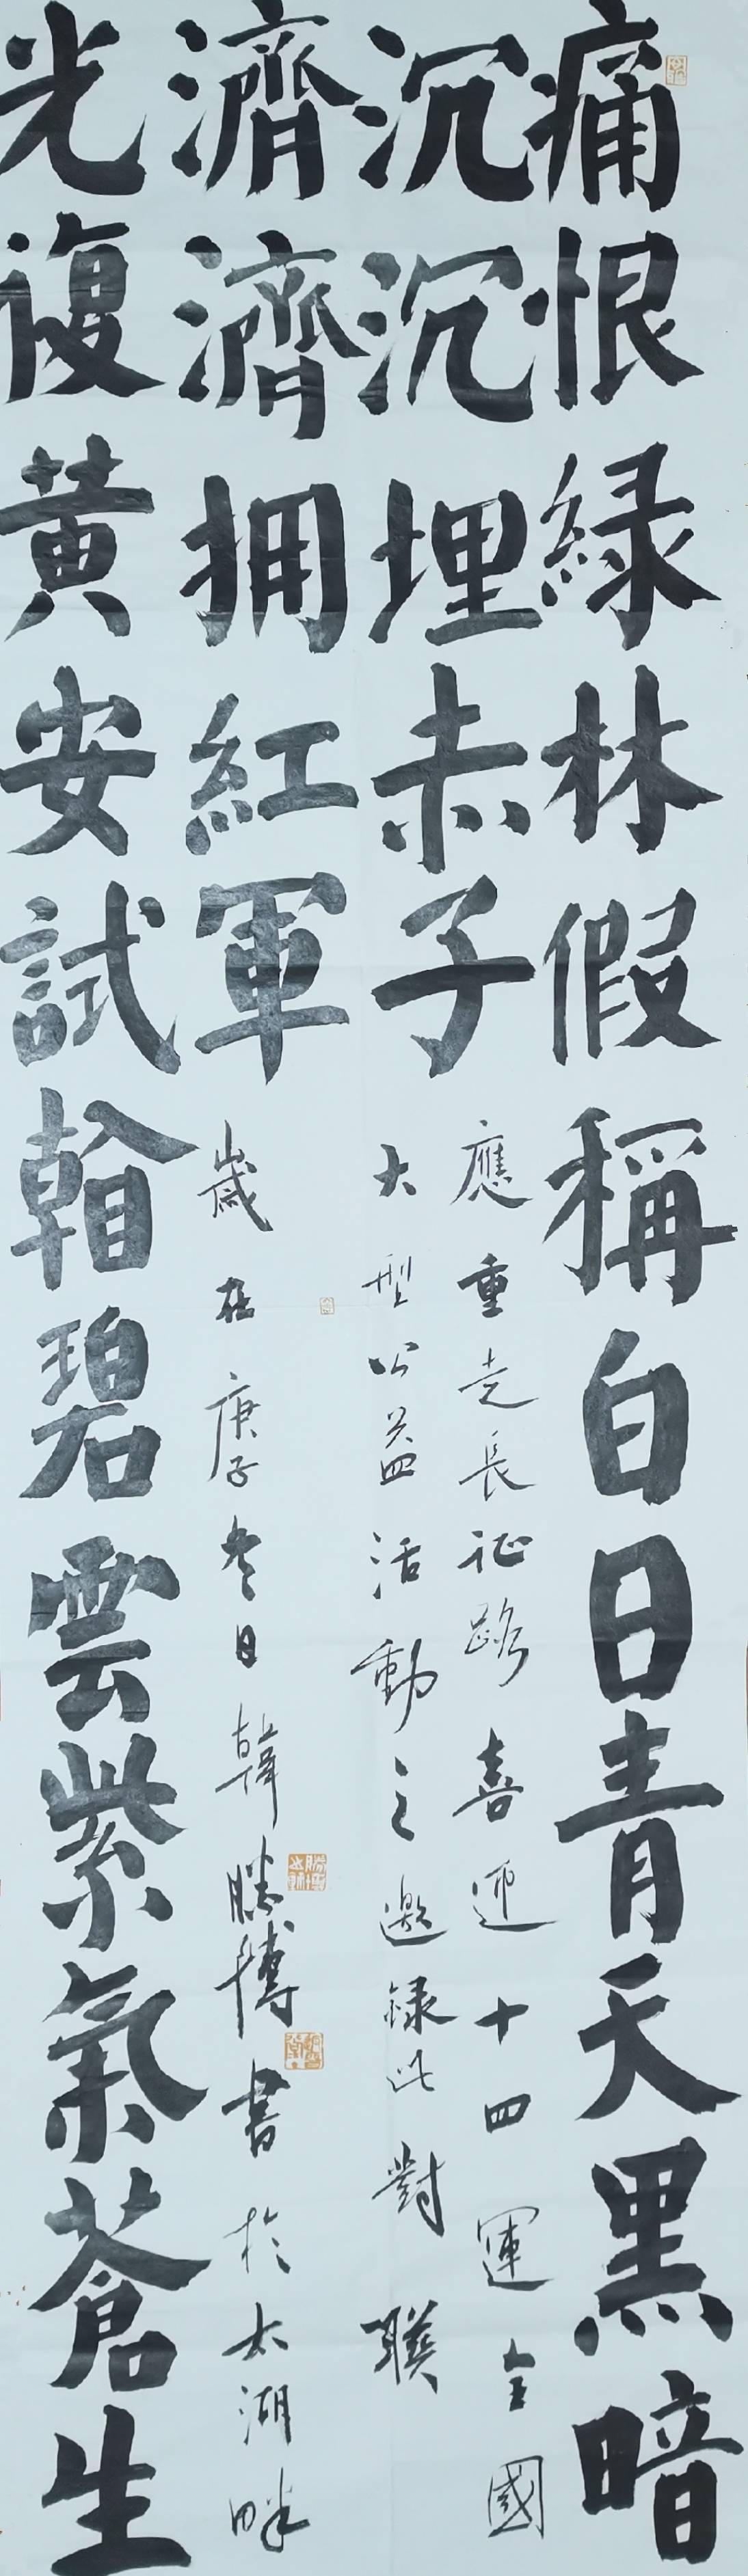 痛恨綠林假稱白日青天黑暗
沉沉埋赤子
應重走長征路喜迎十四運全國
大型公益活動之邀錄此對聯
光復黃安試看碧雲紫氣蒼生
濟濟拥紅軍
歲在庚子冬日韓勝博書於太湖畔